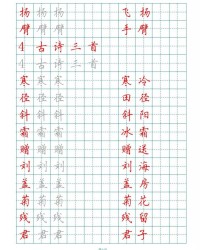 扬 扬 扬 飞 扬
臂 臂 臂 手 臂
4 古 诗 三 首
4 古 诗 三 首
寒 寒 寒 寒 冷
径 径 径 田 径
斜 斜 斜 斜 阳
霜 霜 霜 冰 霜
赠 赠 赠 赠 送
刘 刘 刘 刘 海
盖 盖 盖 盖 房
菊 菊 菊 菊 花
残 残 残 残 留
君 君 君 君 子